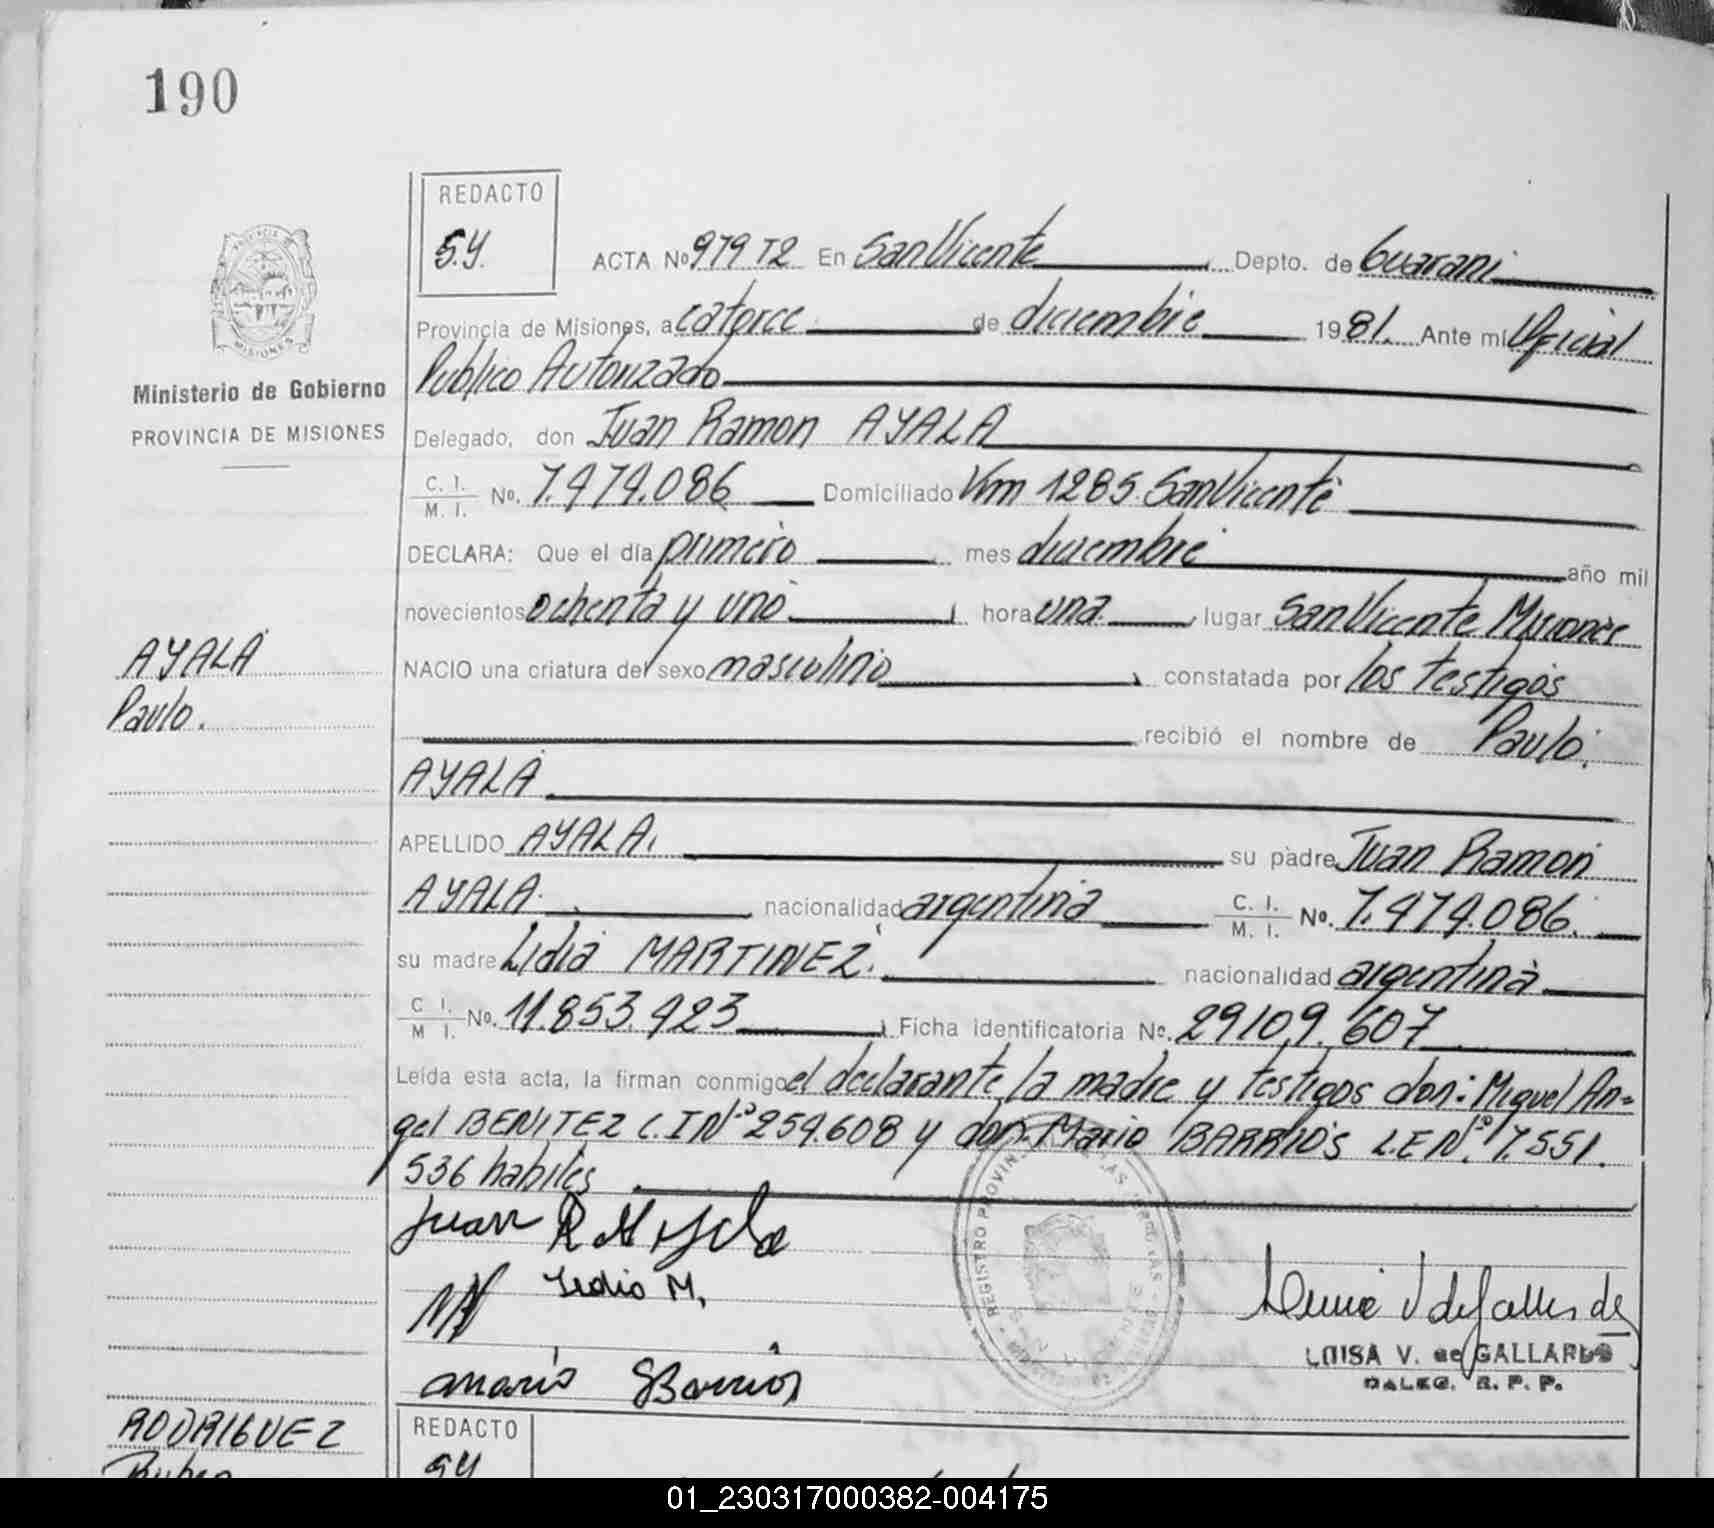 190
REDACTO
S.Y.
ACTA Nº 979 T2 En San Vicente Depto. de Guarani
Provincia de Misiones, a catorce de diciembre 1981. Ante mí Oficial
Publico Autorizado
Delegado, don Juan Ramon AYALA
C. I. / M. I. No. 7.474.086 Domiciliado Km 1285 San Vicente
DECLARA: Que el día primero mes diciembre año mil
novecientos ochenta y uno hora una lugar San Vicente Misiones
NACIO una criatura del sexo masculino constatada por los testigos
recibió el nombre de Paulo.
AYALA
APELLIDO AYALA. su padre Juan Ramon
AYALA nacionalidad argentina C. I. / M. I. No. 7.474.086.
su madre Lidia MARTINEZ. nacionalidad argentina
C I. / M I. No. 11.853.423 Ficha identificatoria No. 29109.607
Leída esta acta, la firman conmigo el declarante, la madre y testigos don: Miguel An=
gel BENITEZ C.I Nº 254.608 y don Mario BARRIOS L.E Nº. 7.551.
536 habiles
Juan R Ayala
Lidia M.
Mario Barrios
LUISA V. de GALLARDO
DALEG. R. P. P.
PROVINCIA DE MISIONES
Ministerio de Gobierno
PROVINCIA DE MISIONES
AYALA
Paulo.
REGISTRO PROVIN
RODRIGUEZ
Ruben
REDACTO
SY
01_230317000382-004175